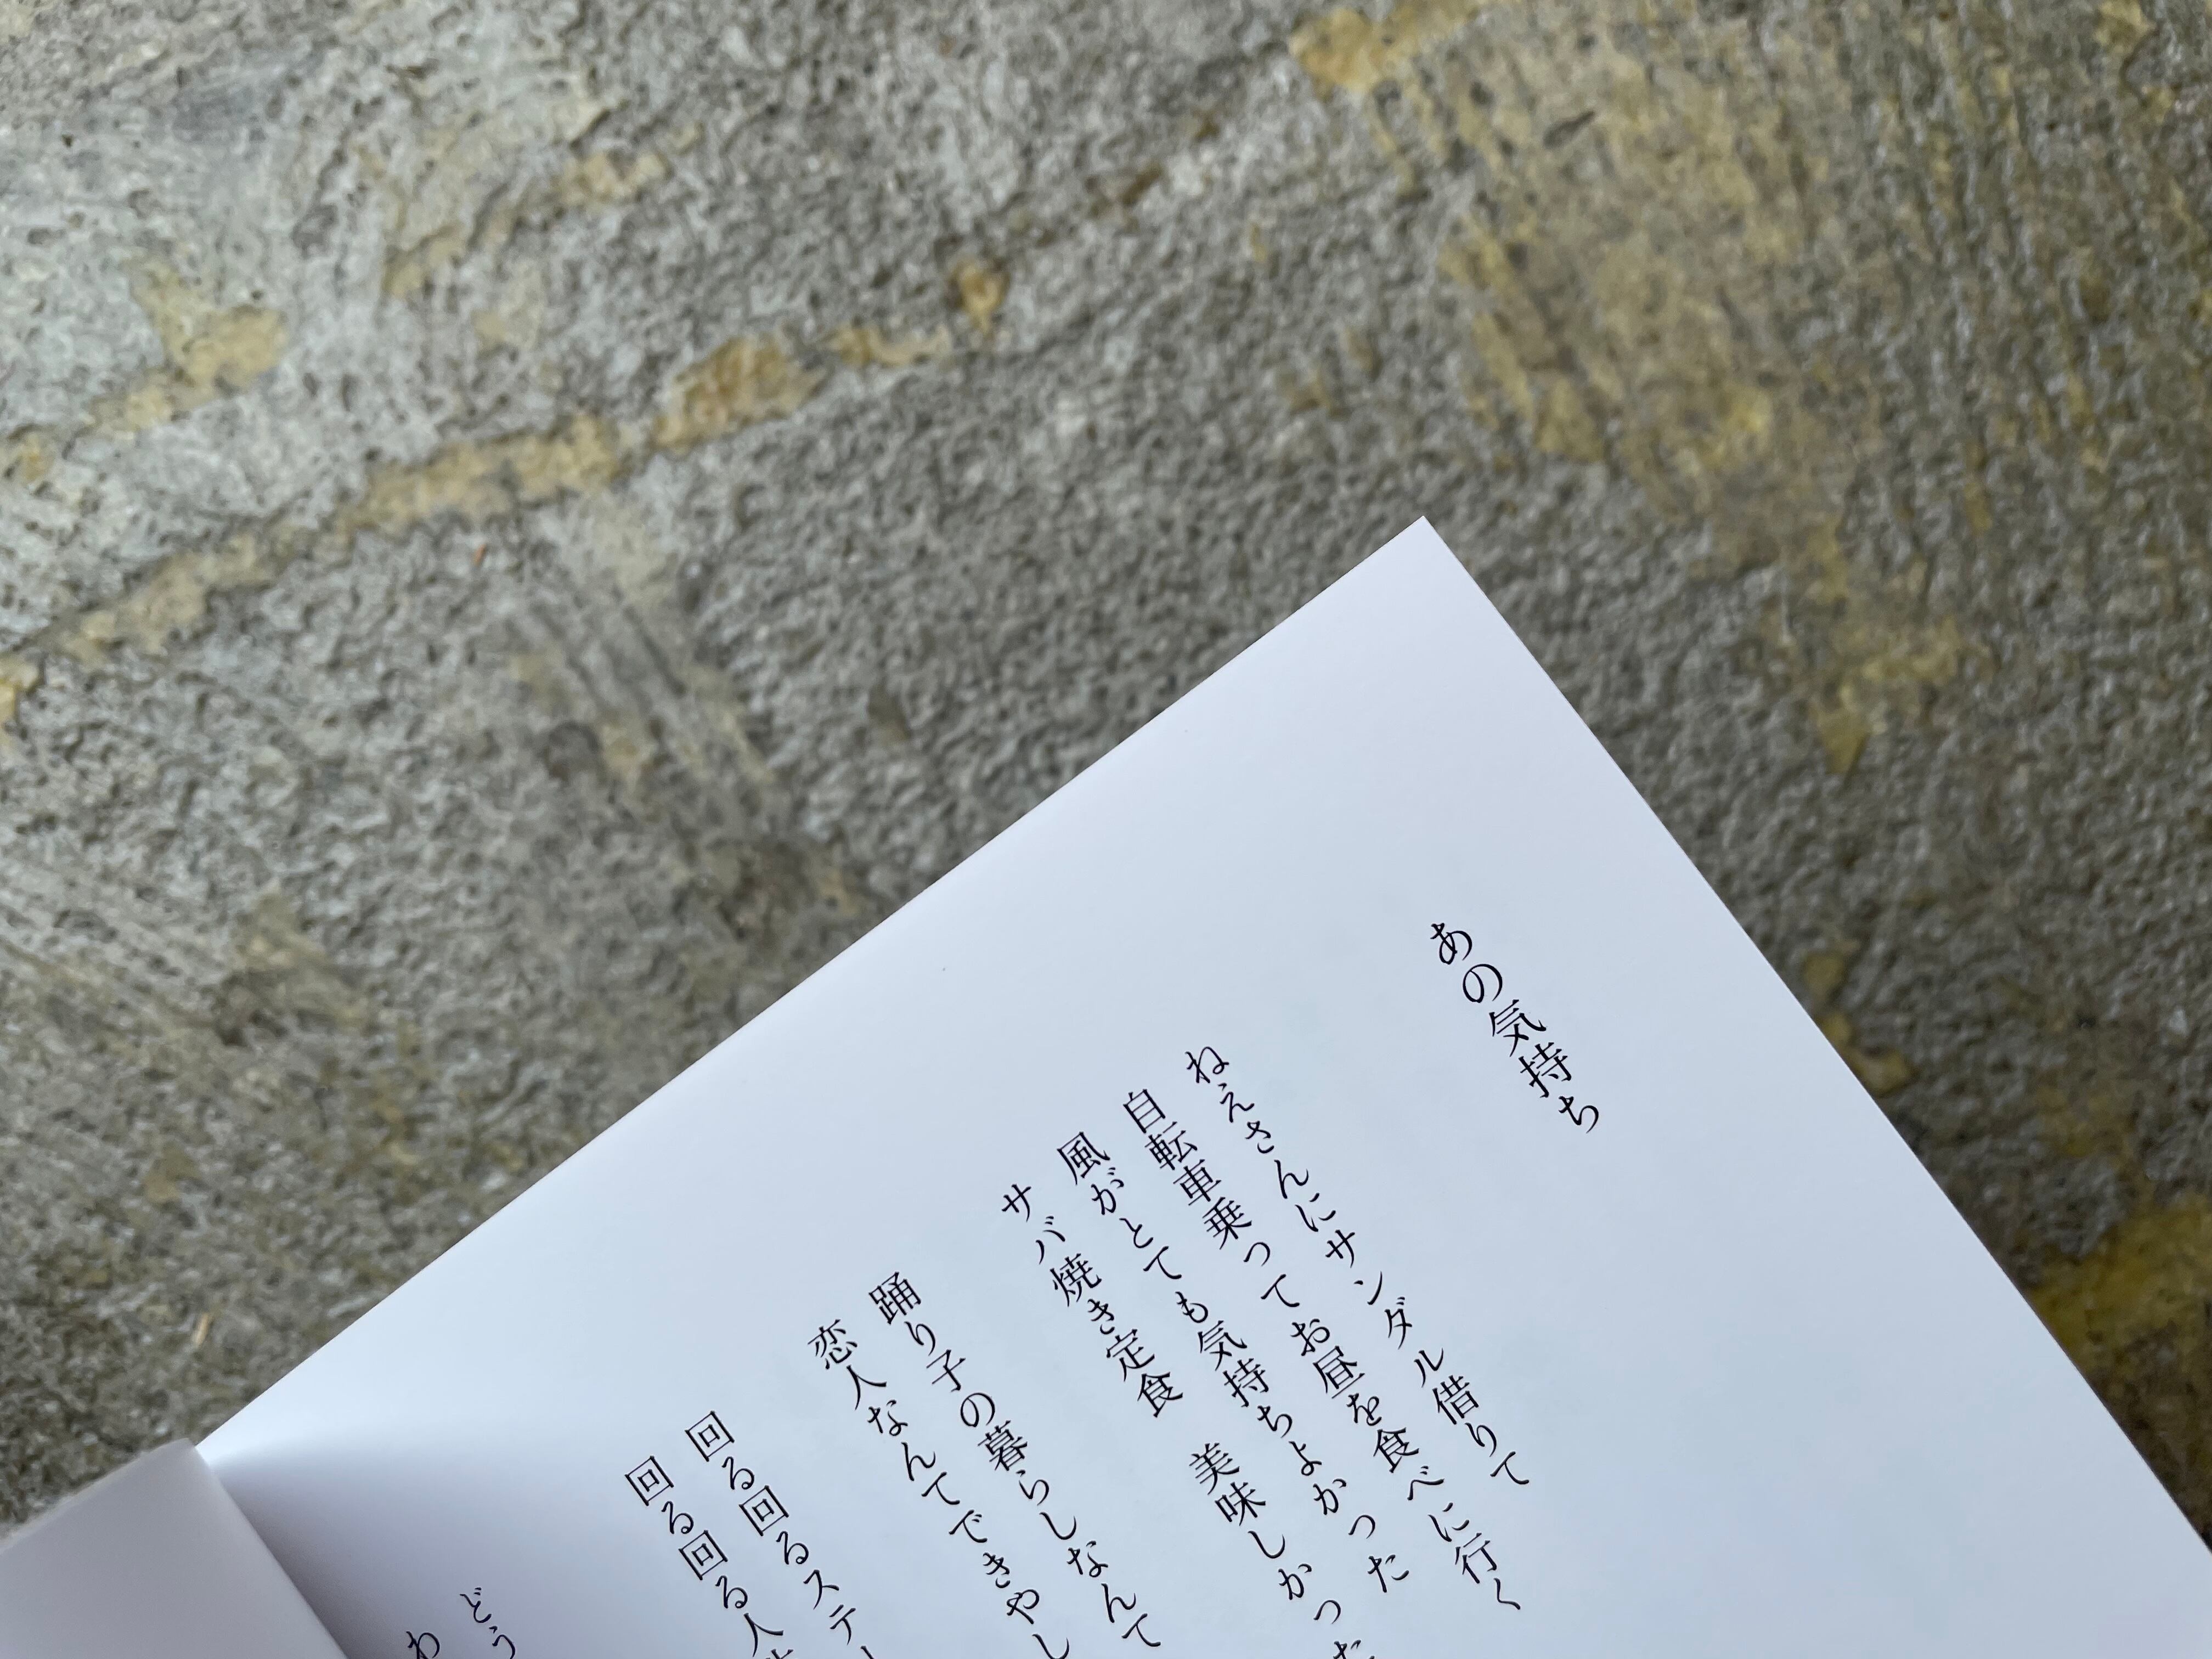 あの気持ち
ねえさんにサンダル借りて
自転車乗ってお昼を食べに行く
風がとても気持ちよかった
サバ焼き定食　美味しかった
踊り子の暮らしなんて
恋人なんてできやし
回る回るステー
回る回る人
どう
わ